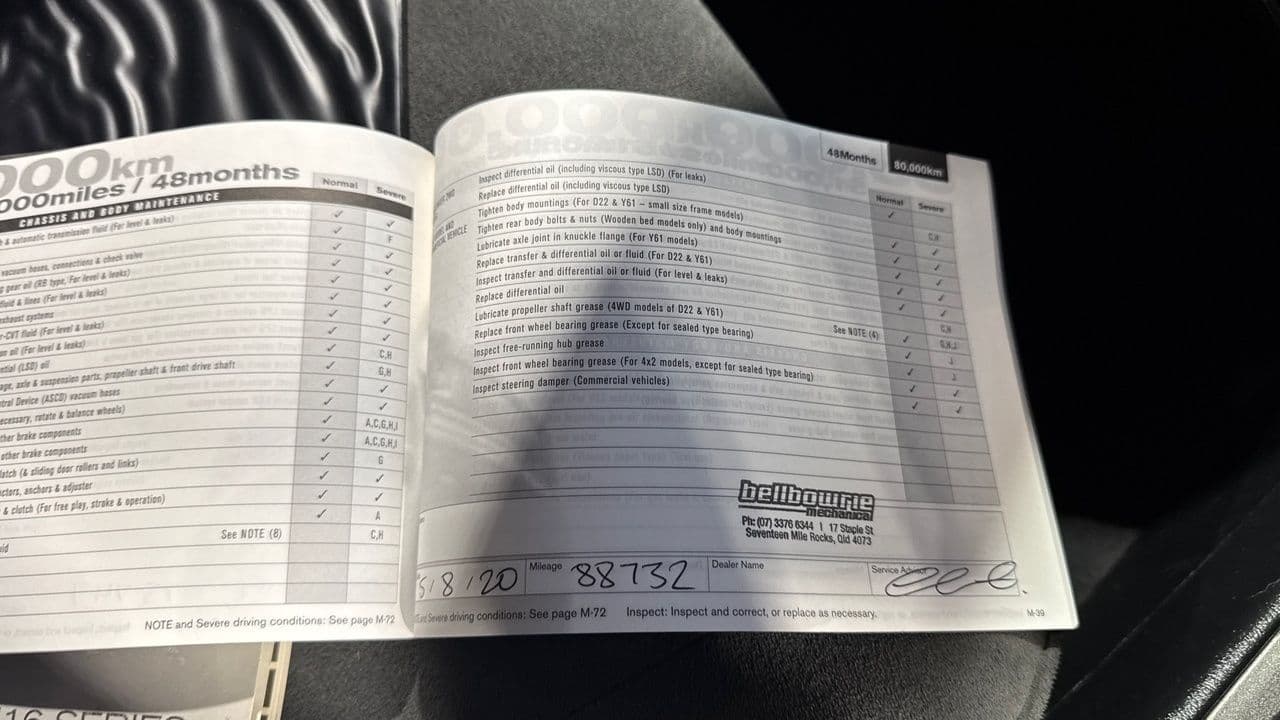 000km
000miles / 48months
Normal
Severe
CHASSIS AND BODY MAINTENANCE
& automatic transmission fluid (For level & leaks)
✓ ✓
✓ F
vacuum hoses, connections & check valve
✓ ✓
gear oil (RB type, For level & leaks)
✓ ✓
fluid & lines (For level & leaks)
✓ ✓
exhaust systems
✓ ✓
-CVT fluid (For level & leaks)
✓ ✓
oil (For level & leaks)
✓ C,H
(LSD) oil
✓ G,H
axle & suspension parts, propeller shaft & front drive shaft
✓ ✓
Device (ASCD) vacuum hoses
✓ ✓
rotate & balance wheels)
✓ A,C,G,H,I
other brake components
✓ A,C,G,H,I
other brake components
✓ G
latch (& sliding door rollers and links)
✓ ✓
anchors & adjuster
✓ ✓
& clutch (For free play, stroke & operation)
✓ A
See NOTE (8)
C,H
NOTE and Severe driving conditions: See page M-72
16 SERIES
48Months
80,000km
Normal
Severe
VEHICLE
Inspect differential oil (including viscous type LSD) (For leaks)
Replace differential oil (including viscous type LSD)
Tighten body mountings (For D22 & Y61 – small size frame models)
Tighten rear body bolts & nuts (Wooden bed models only) and body mountings
Lubricate axle joint in knuckle flange (For Y61 models)
Replace transfer & differential oil or fluid (For D22 & Y61)
Inspect transfer and differential oil or fluid (For level & leaks)
Replace differential oil
Lubricate propeller shaft grease (4WD models of D22 & Y61)
Replace front wheel bearing grease (Except for sealed type bearing) See NOTE (4)
Inspect free-running hub grease
Inspect front wheel bearing grease (For 4x2 models, except for sealed type bearing)
Inspect steering damper (Commercial vehicles)
bellbowrie
mechanical
Ph: (07) 3376 6344 | 17 Staple St
Seventeen Mile Rocks, Qld 4073
5/8/20
Mileage 88732
Dealer Name
Service Advisor
and Severe driving conditions: See page M-72 Inspect: Inspect and correct, or replace as necessary.
M-39